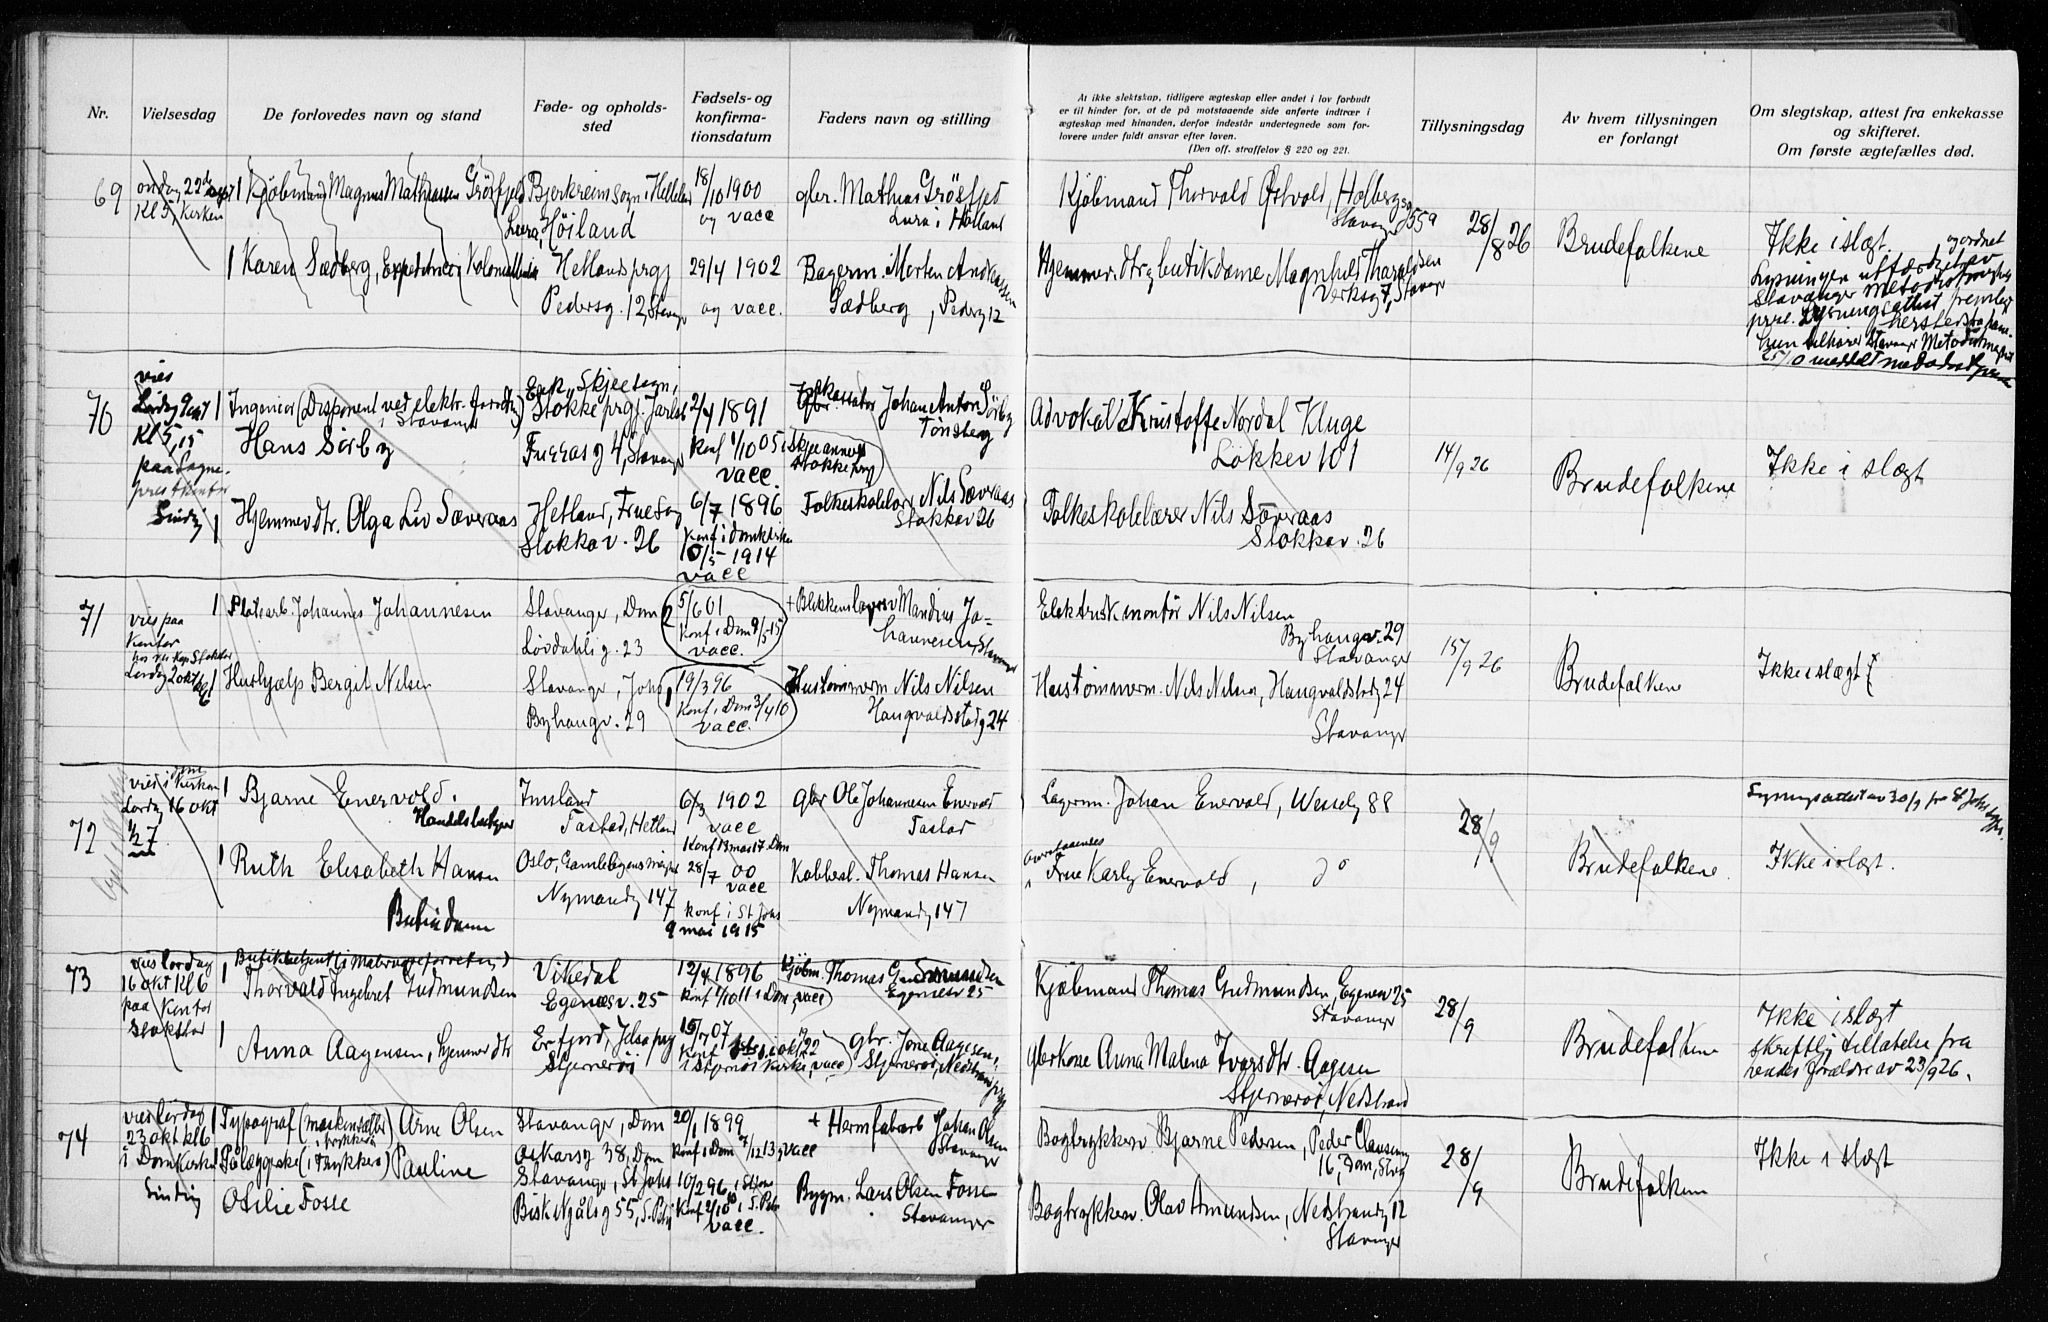 Nr.
Vielsesdag
De forlovedes navn og stand
Føde- og opholds-
sted
Fødsels- og
konfirma-
tionsdatum
Faders navn og stilling
At ikke slektskap, tidligere ægteskap eller andet i lov forbudt
er til hinder for, at de på motstaaende side anførte indtrær i
ægteskap med hinanden, derfor indestår undertegnede som for-
lovere under fuldt ansvar efter loven.
(Den off. straffelov § 220 og 221.
Tillysningsdag
Av hvem tillysningen
er forlangt
Om slegtskap, attest fra enkekasse
og skifteret.
Om første ægtefælles død.
69
Kl 5, Kirken
1 Kjøbmand Magnus Mathiassen Grøsfjeld
Bjerkreim sogn i Helleland
Lura, Høiland
18/10 1900
og vacc
gbr. Mathias Grøsfjed
Lura i Høiland
Kjøbmand Thorvald Østvold, Holbergsg
Stavanger 55a
28/8 26
Brudefolkene
Ikke i slægt.
1 Karen Sædberg,
Hetland prgj
Pedersg. 12, Stavgr
29/4 1902
og vacc.
Bagerm. Morten Andreassen
Sædberg, Pederg 12
Hjemmev. dtr g butikdame Magnhild Tharaldsen
Verksg 7, Stavgr
70
vies
Lørdag 9 okt
Kl 5,15
paa Sogne-
prestkontor
Sinding
1 Ingeniør (Disponent ved elektr. forretng
i Stavanger)
Hans Sørby
Skjee sogn,
Stokke prgj. Jarlsb
4, Stavanger
2/4 1891
Konf 1/10 05 i Skjee annex
Stokke prgj
vacc.
Johan Anton Sørby
Tønsberg
Advokat Kristoffe Nordal Kluge
Løkkev 101
14/9 26
Brudefolkene
Ikke i slægt
1 Hjemmev dtr. Olga Liv Sæveraas
Hetland, Frue sog
Stokkav. 26
6/7 1896
Konf i Domkirken
10/5 - 1914
vacc
Folkeskolelær Nils Sæveraas
Stokkav 26
Folkeskolelærer Nils Sæveraas
Stokkav. 26
71
vies paa
Kontor
Lørdag 2 okt
1 Platearb. Johannes Johannesen
Stavanger, Dom
Løvdahls g. 23
5/6 01
Konf i Dom 9/5-15
vacc.
+ Blikkenslager Mandius Jo-
hannesen, Stavanger
Elektrisk montør Nils Nilsen
Byhaugv. 29
Stavanger
15/9 26
Brudefolkene
Ikke i slægt
1 Hushjælp Bergit Nilsen
Stavanger, Johs
Byhaugv. 29
19/3 96
Konf, Dom 3/4 10
vacc.
Hustømmerm Nils Nilsen
Haugvaldstadg 24
Hustømmerm. Nils Nilsen, Haugvaldstadg 24
Stavanger
72
vied i Kirken
Lørdag 16 okt
1/2 7
1 Bjarne Enervold.
Handelsbetjent
Imsland
Tastad, Hetland
6/3 1902
vacc
Konf 13 mai 17 Dom
gbr Ole Johannesen Enervold
Tastad
Lagerm. Johan Enervold, Wesselg 88
28/9
Brudefolkene
Lysningsattest av 30/9 fra St Johs
Ikke i slægt.
1 Ruth Elisabeth Hansen
Butikdame
Oslo, Gamlebyens
Nymandg 147
28/7 00
vacc
Konf i St Johs
9 mai 1915
Kobbesl. Thomas Hansen
Nymandg 147
Frue Karly Enervold, do
73
vies lørdag
16 okt kl 6
paa Kontor
1 Butikbetjent (i
Thorvald Ingebret Gudmundsen
Vikedal
Egenesv. 25
12/4 1896
Konf 1/10 11 i Dom, vacc
Kjøbm. Thomas Gudmundsen
Egenesv 25
Kjøbmand Thomas Gudmundsen, Egenesv 25
Stavanger
28/9
Brudefolkene
Ikke i slægt
skriftlig tillatelse fra
hendes forældre av 23/9 26.
1 Anna Aagensen, hjemmev dtr
Erfjord, Jelsa prgj
Stjernerøi
i Stjernerøi Kirke, vacc)
gbr. Jone Aagesen,
Stjernerøi, Nedstrand prgj
gbrkone Anna Malena Ivarsdtr. Aagesen
Stjernerøi, Nedstrand
74
vies lørdag
23 okt kl 6
i Domkirken
Sinding
1 Typograf (maskinsætter
i trykkeri) Arne Olsen
Stavanger, Dom
Oskarsg 38, Dom
20/1 1899
konf i Dom 7/12 13, vacc
+ Hermfabarb Johan Olsen
Stavanger
Bogtrykkesv Bjarne Pedersen, Peder Clausens
16, Dom, Stvg
28/9
Brudefolkene
Ikke i slægt
1 Pålæggerske (i Trykkeri) Pauline
Otilie Fosse
Stavanger, St Johs
Bisk Njåls g 55, S. Petri
10/2 96, i St Johs
Konf 2/10 10 i S. Petri
vacc.
Bygm. Lars Olsen Fosse
Stavanger
Bogtrykkesv. Olav Amundsen, Nedstrandg 12
Stavanger